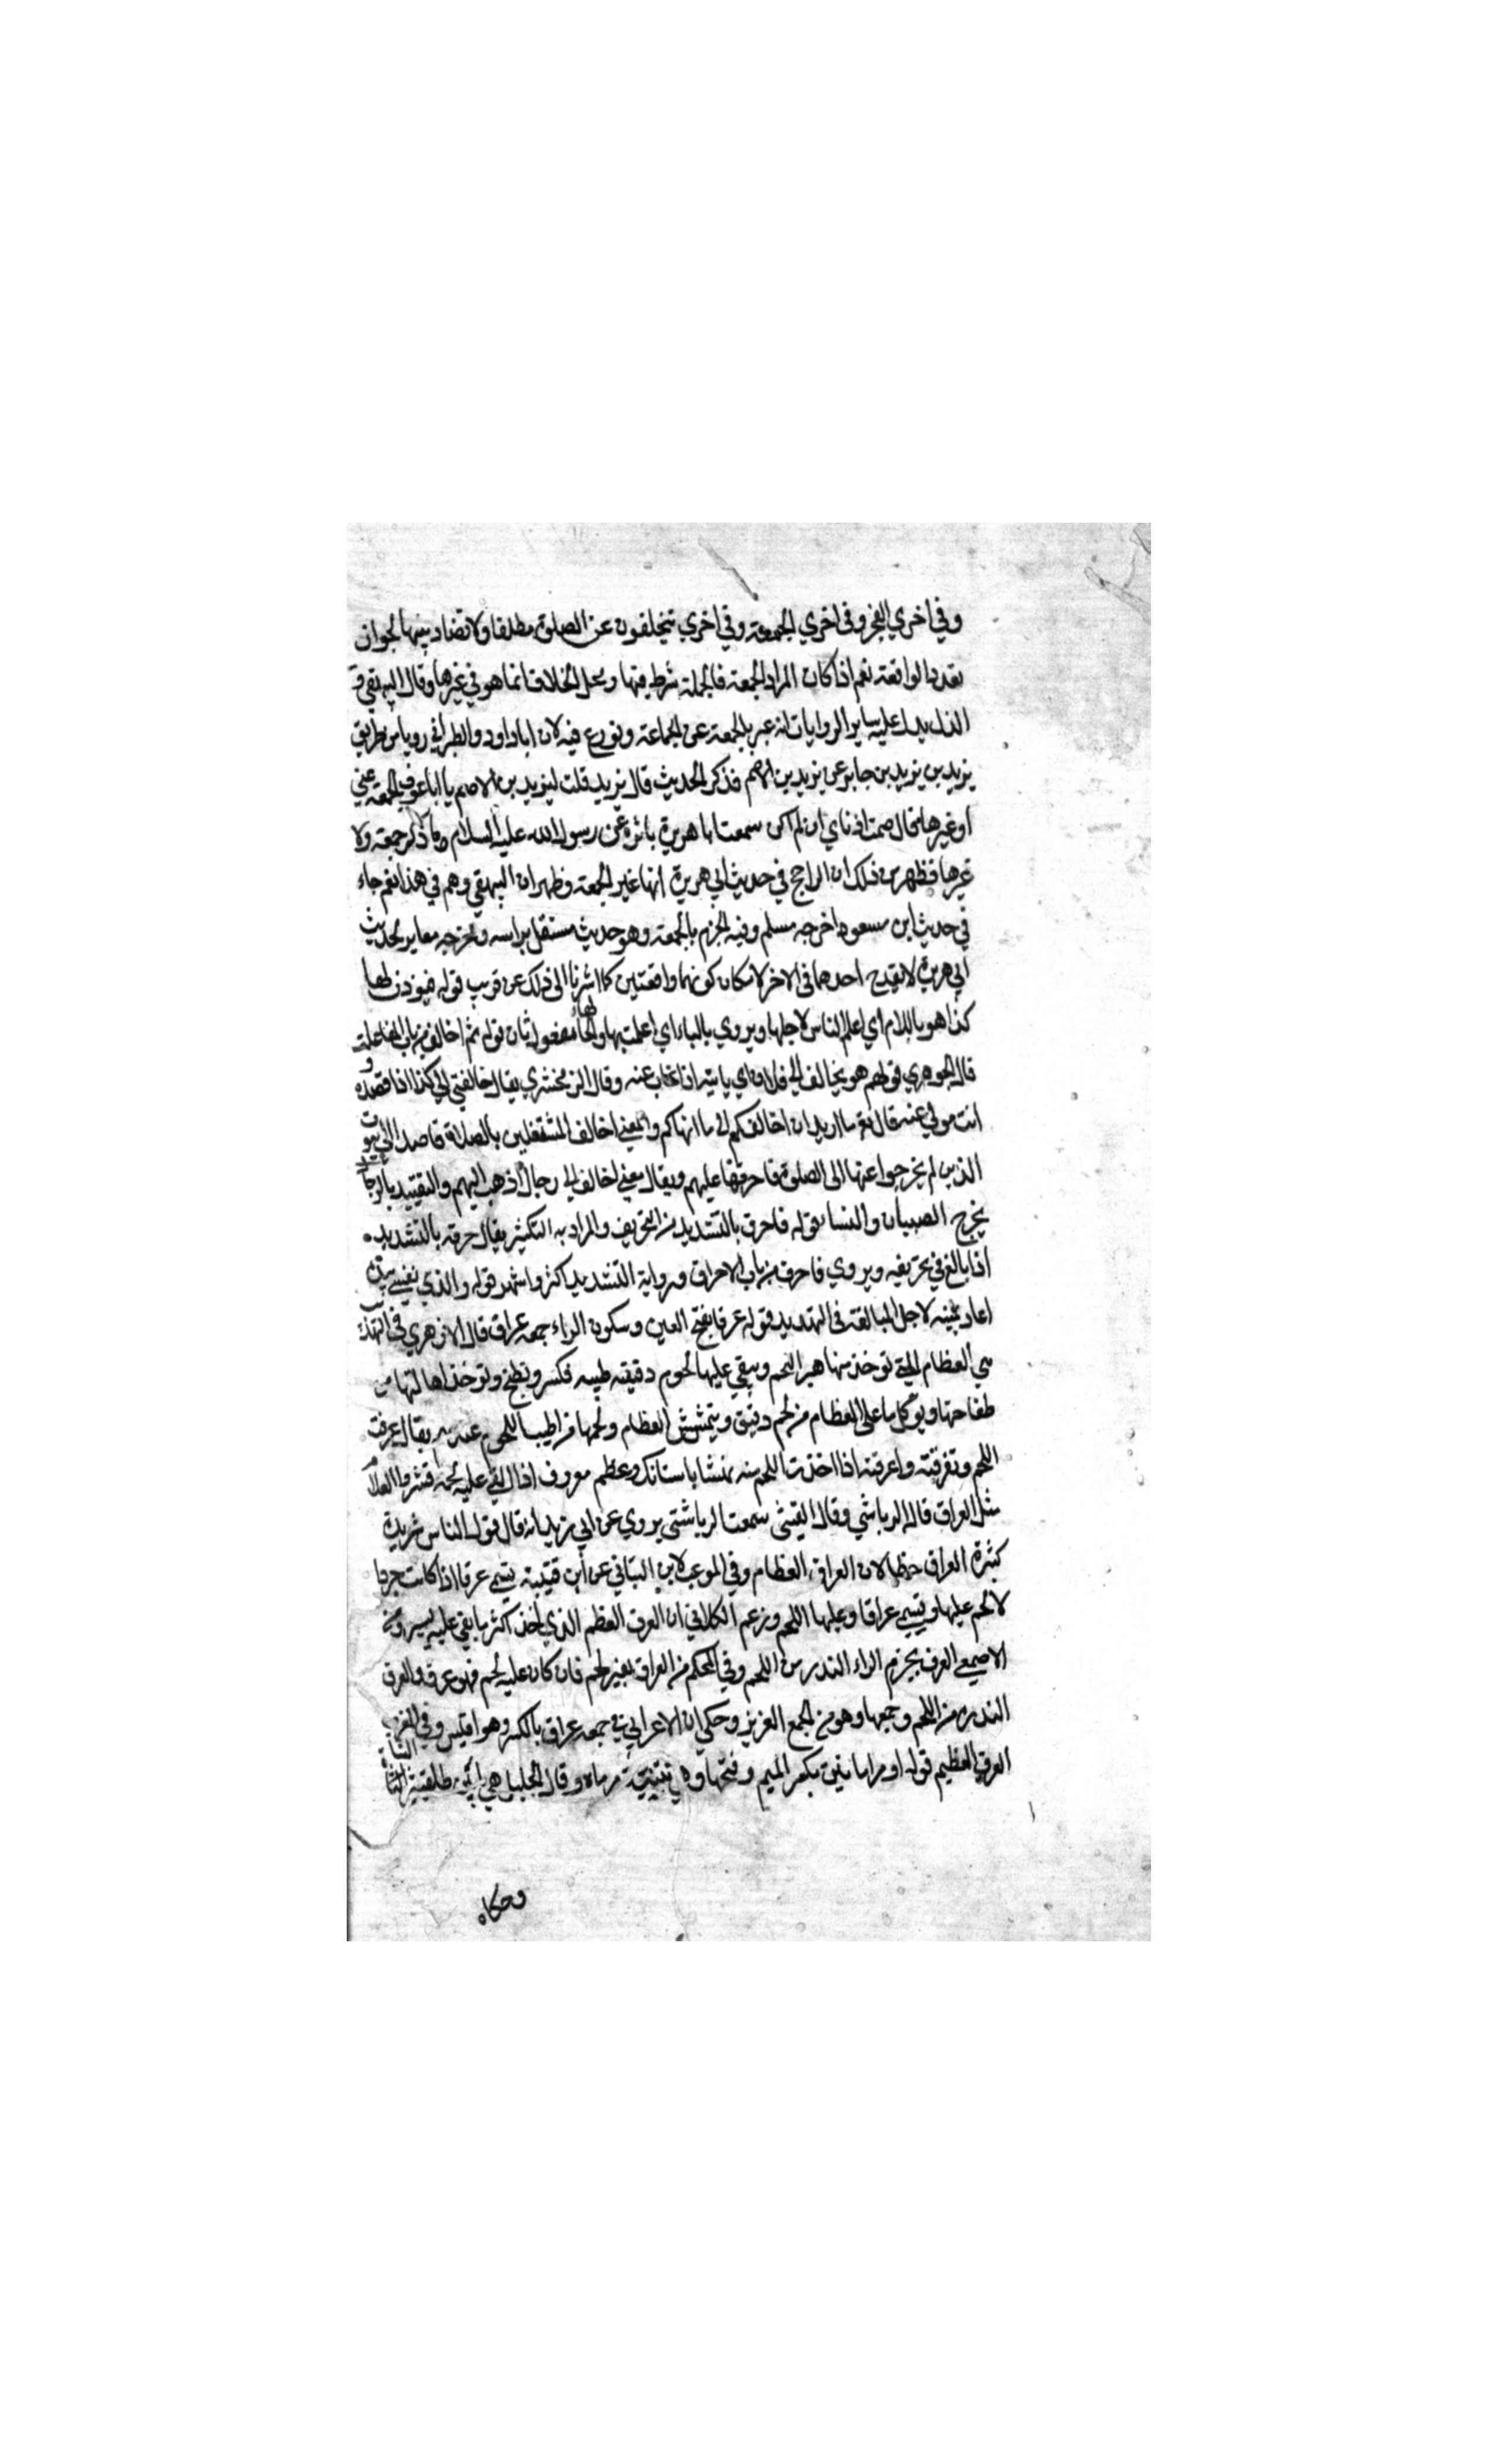 وفي اخري الفجر وفي اخري الجمعة وفي اخري يتخلفون عن الصلوة مطلقا ولا تضاد بينها لجواز
تعدد الواقعة نعم اذا كان المراد الجمعة فالجملة شرط فيها ومحل الخلاف انما هو في غيرها وقال البيهقي و
الذي يدل عليه ساير الروايات انه عبر بالجمعة عن الجماعة ونوزع فيه لان ابا داود والطبراني رويا من طريق
يزيد بن يزيد بن جابر عن يزيد بن الاصم فذكر الحديث قال يزيد قلت ليزيد بن الاصم يا ابا عوف الجمعة عني
او غيرها قال صمت اذناي ان لم اكن سمعت ابا هريرة ياثره عن رسول الله عليه السلام وما ذكر جمعة ولا
غيرها فظهر من ذلك ان الراجح في حديث ابي هريرة انها غير الجمعة وظهر ان البيهقي وهم في هذا نعم جاء
في حديث ابن مسعود اخرجه مسلم وفيه الجزم بالجمعة وهو حديث مستقل براسه ومخرجه مغاير لحديث
ابي هريرة لا يقدح احدهما في الاخر لامكان كونهما واقعتين كما اشرنا الى ذلك عن قريب قوله فيوذن لها
كذا هو باللام اي اعلم الناس لاجلها ويروي بالباء اي اعلمت بها والهاء مفعول ثان قوله ثم اخالف من باب المفاعلة
قال الجوهري قولهم هو يخالف الي فلان اي ياتيه اذا غاب عنه وقال الزمخشري يقال خالفني الي كذا اذا قصده و
انت مولي عنه قال تع ما اريد ان اخالفكم الى ما انهاكم والمعني اخالف المشتغلين بالصلاة قاصدا الي بيوت
الذين لم يخرجوا عنها الى الصلوة فاحرقها عليهم ويقال معني اخالف الي رجال اذهب اليهم والتقييد بالرجال
يخرج الصبيان والنسا قوله فاحرق بالتشديد من التحريق والمراد به التكثير يقال حرقه بالتشديد
اذا بالغ في تحريقه ويروي فاحرق من باب الاحراق ورواية التشديد اكثر واشهر قوله والذي نفسي بيده
اعاد يمينه لاجل المبالغة في التهديد قوله عرقا بفتح العين وسكون الراء جمعه عراق قال الازهري في التهذيب
هي العظام التي توخذ منها هبر اللحم ويبقي عليها لحوم دقيقة طيبه فتكسر وتطبخ وتوخذ اهالتها من
طفاحتها ويوكل ما على العظام من لحم دقيق ويتمشش العظام ولحمها من اطيب اللحوم عندهم يقال عرقت
اللحم وتعرقته واعرقته اذا اخذت اللحم منه نهشا باسنانك وعظم معروق اذا القي عليه لحمه
مثل العراق قاله الرياشي وقال القتبي سمعت الرياشي يروي عن ابي زيد انه قال قول الناس ثريدة
كثيرة العراق خطا لان العراق العظام وفي الموعب لابن التياني عن ابن قتيبة يسمى عرقا اذا كانت جردا
لا لحم عليها ويسمي عراقا وعليها اللحم وزعم الكلابي ان العرق العظم الذي اخذ اكثر ما بقي عليه يسير وعن
الاصمعي العرق بجزم الراء الفدر من اللحم وفي المحكم من العراق بغير لحم فان كان عليه لحم فهو عرق والعرق
الفدرة من اللحم وجمعها وهو من الجمع العزيز وحكي ابن الاعرابي في جمعه عراق بالكسر وهو اقيس وفي المغرب
العرق العظيم قوله او مرماتين بكسر الميم وفتحها وهي تثنية مرماه وقال الخليل هي ما بين ظلفي الشاة
وحكاه